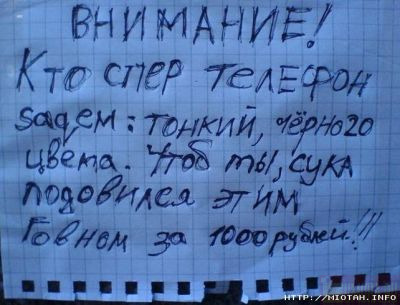 ВНИМАНИЕ!
Кто спер телефон
sagем: тонкий, чёрного
цвета. Чтоб ты, сука
подовился этим
Говном за 1000 рублей!!!
HTTP://MIOTAH.INFO